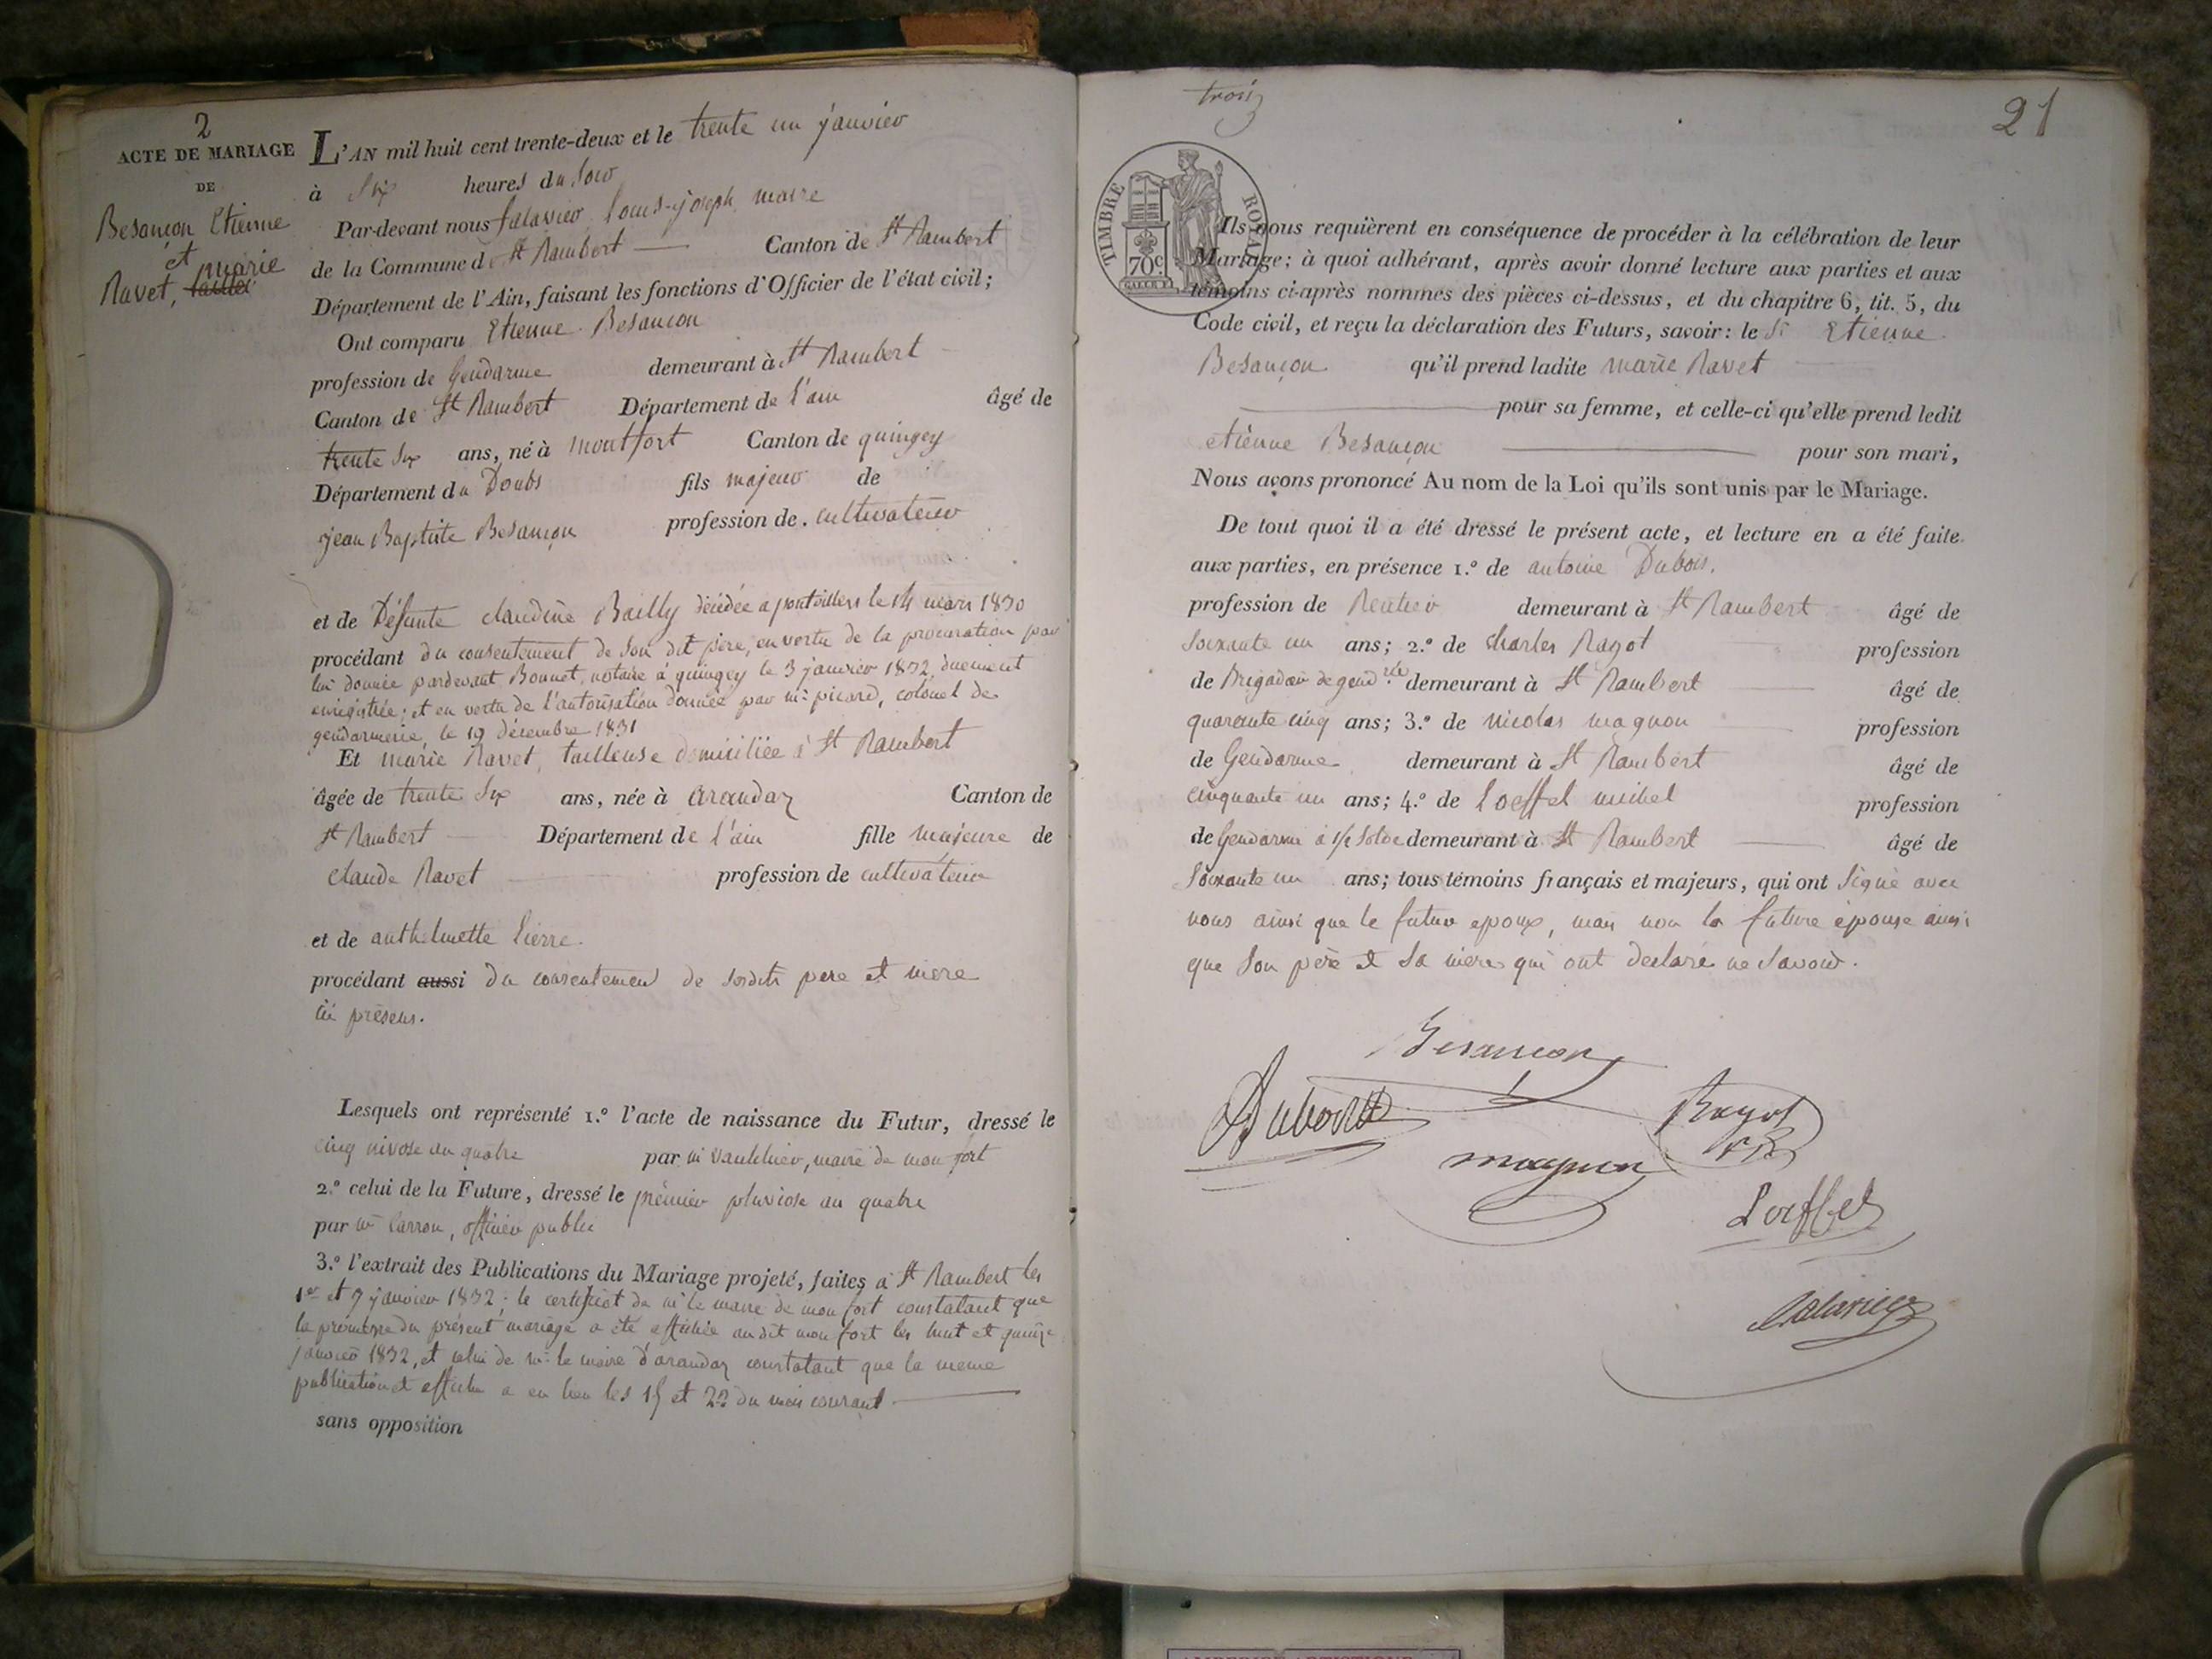 2
ACTE DE MARIAGE
DE
Besançon Etienne
et
marie
Ravet,
L'AN mil huit cent trente-deux et le trente un janvier
à Six heures du Soir
Par-devant nous falavier, Louis-joseph, maire
de la Commune de St Rambert Canton de St Rambert
Département de l'Ain, faisant les fonctions d'Officier de l'état civil;
Ont comparu Etienne Besancon
profession de Gendarme demeurant à St Rambert
Canton de St Rambert Département de l'ain âgé de
trente Six ans, né à montfort Canton de quingey
Département du Doubs fils majeur de
jean Baptiste Besançon profession de cultivateur
et de Défunte claudine Bailly décédée a pontvillers le 14 mars 1830
procédant du consentement de Son dit père, en vertu de la procuration par
lui donnée pardevant Bonnet, notaire à quingey le 3 janvier 1832, duement
enregistrée; et en vertu de l'autorisation donnée par mr picard, colonel de
gendarmerie, le 19 décembre 1831
Et marie Ravet, tailleuse domiciliée à St Rambert
âgée de trente Six ans, née à arandaz Canton de
St Rambert Département de l'ain fille majeure de
claude Ravet profession de cultivateur
et de anthelmette Pierre.
procédant aussi du consentement de Sesdits pere et mere
ici présens.
Lesquels ont représenté 1.º l'acte de naissance du Futur, dressé le
cinq nivose an quatre par mr maire de mon fort
2.º celui de la Future, dressé le premier pluviose an quatre
par mr Carron, officier public
3.º l'extrait des Publications du Mariage projeté, faites à St Rambert les
1er et 9 janvier 1832; le certificat de mr le maire de mon fort constatant que
la promesse du présent mariage a été affichée audit mon fort les huit et quinze
janvier 1832, et celui de mr le maire d'arandaz constatant que la meme
publication et affiche a eu lieu les 15 et 22 du mois courant
sans opposition
trois
21
TIMBRE ROYAL
70c
Ils nous requièrent en conséquence de procéder à la célébration de leur
Mariage; à quoi adhérant, après avoir donné lecture aux parties et aux
témoins ci-après nommés des pièces ci-dessus, et du chapitre 6, tit. 5, du
Code civil, et reçu la déclaration des Futurs, savoir: le Sr Etienne
Besançon qu'il prend ladite marie Ravet
pour sa femme, et celle-ci qu'elle prend ledit
etienne Besançon pour son mari,
Nous avons prononcé Au nom de la Loi qu'ils sont unis par le Mariage.
De tout quoi il a été dressé le présent acte, et lecture en a été faite
aux parties, en présence 1.º de antoine Dubois,
profession de Rentier demeurant à St Rambert âgé de
Soixante un ans; 2.º de charles Ragot profession
de Brigadier de gendrie demeurant à St Rambert âgé de
quarante cinq ans; 3.º de nicolas magnon profession
de Gendarme demeurant à St Rambert âgé de
cinquante un ans; 4.º de Loeffel michel profession
de Gendarme à 1/2 Solde demeurant à St Rambert âgé de
Soixante un ans; tous témoins français et majeurs, qui ont Signé avec
nous ainsi que le futur epoux, mais non la future épouse ainsi
que Son père et Sa mere qui ont declaré ne Savoir.
Besancon
Dubois
Ragot
magnon
Loeffel
falavier